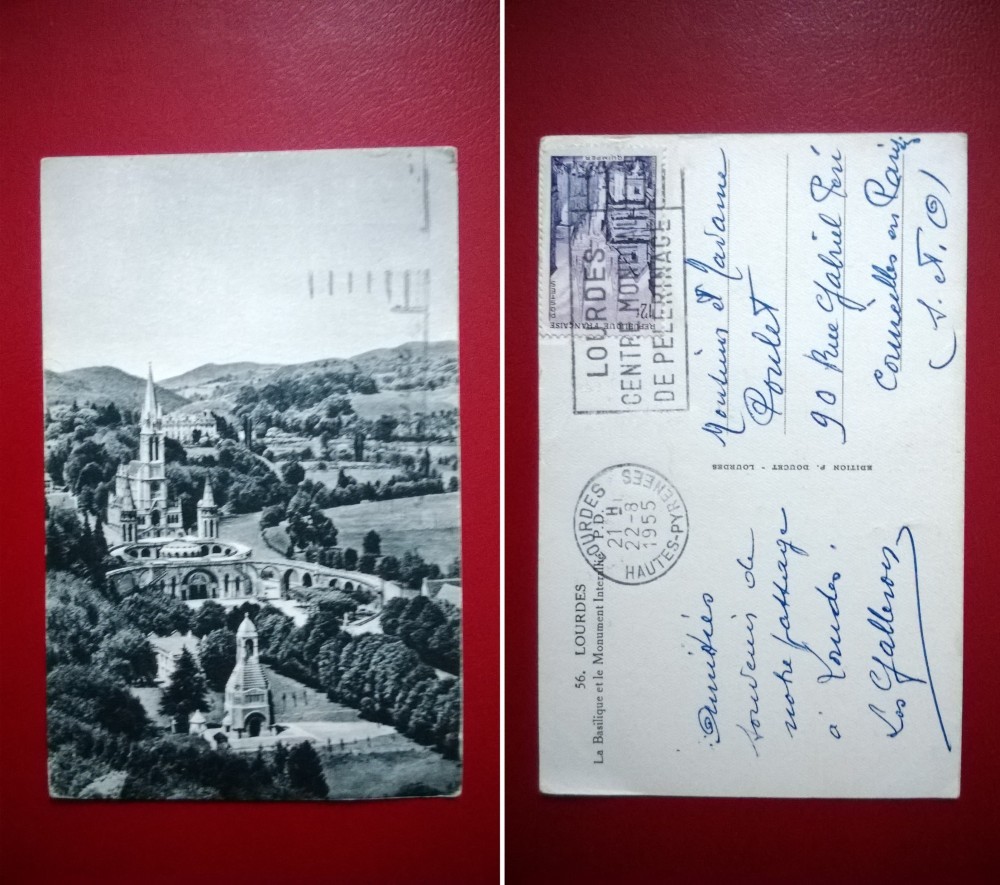 56. LOURDES
La Basilique et le Monument Interallié
Amitiés
souvenirs de
notre passage
à Lourdes.
Les Gallerois
LOURDES P.P.D.
21 H
22-8
1955
HAUTES-PYRENEES
EDITION P. DOUCET - LOURDES
LOURDES
CENTRE MONDIAL
DE PELERINAGE
QUIMPER
12F
REPUBLIQUE FRANÇAISE
Monsieur et Madame
Poulet
90 Rue Gabriel Péri
Cormeilles en Parisis
(S. et. O)